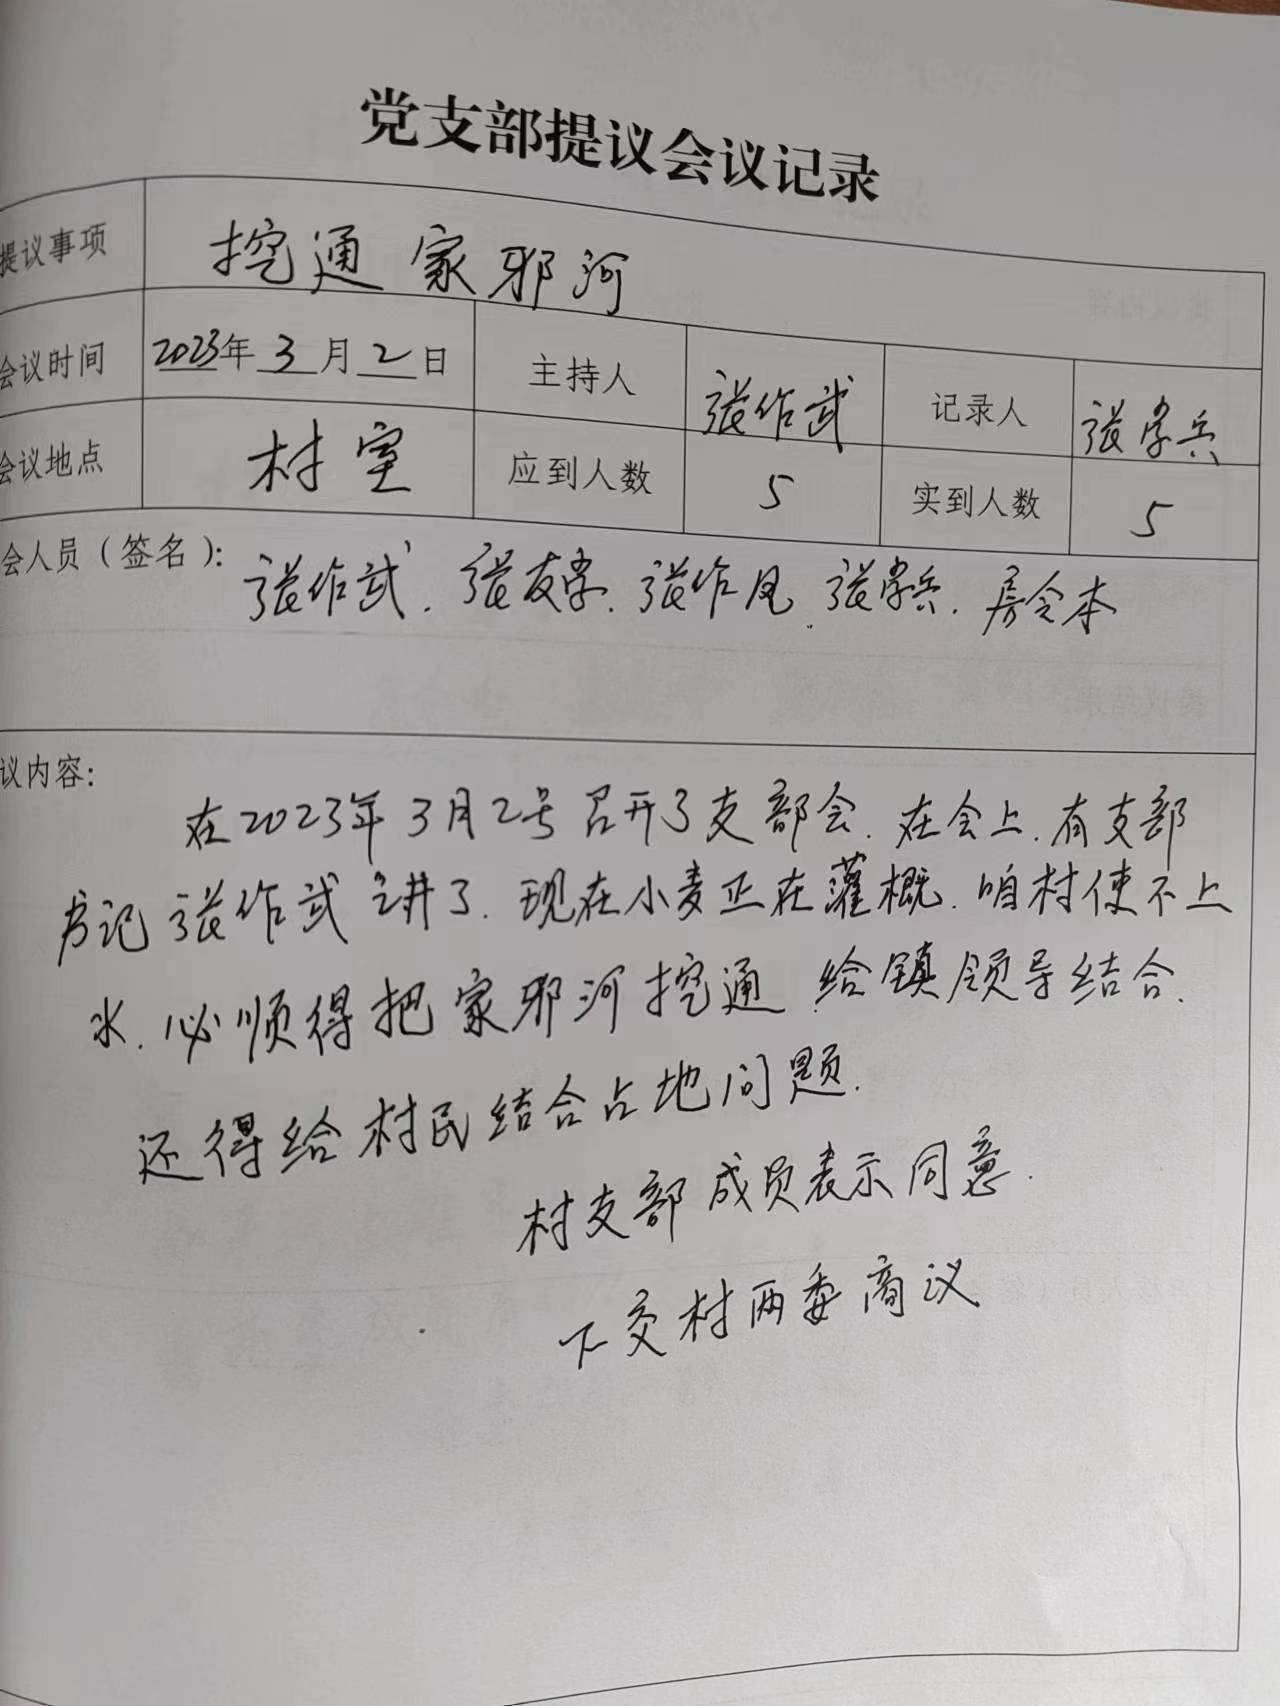 党支部提议会议记录
提议事项 挖通家邪河
会议时间 2023年3月2日 主持人 张作武 记录人 张学兵
会议地点 村室 应到人数 5 实到人数 5
会人员（签名）： 张作武. 张友学. 张作凤. 张学兵. 房令本
议内容：
在2023年3月2号召开了支部会. 在会上. 有支部
书记张作武讲了. 现在小麦正在灌概. 咱村使不上
水. 必顺得把家邪河挖通. 给镇领导结合.
还得给村民结合占地问题.
村支部成员表示同意.
下交村两委商议